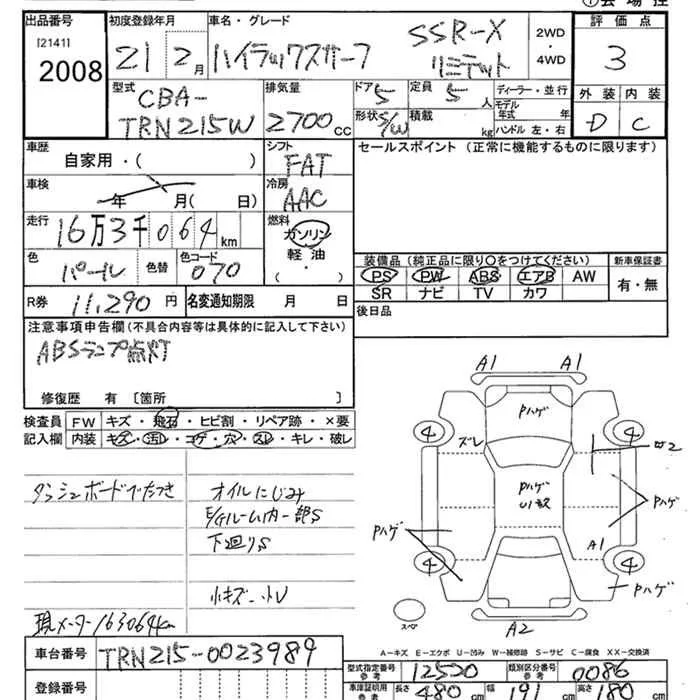 ① 会 場 控
出品番号 初度登録年月 車名・グレード 評 価 点
[2141]
2008 21 2月 ハイラックスサーフ SSR-X リミテット 2WD ・ 4WD 3
型式 排気量 ドア 定員 ディーラー・並行 外 装 内 装
CBA- 5 5人 モデル年式 年
TRN215W 2700cc 形状 S/W 積載 kg ハンドル 左・右 D C
車歴 自家用・( ) シフト FAT セールスポイント (正常に機能するものに限ります)
車検 年 月( 日) 冷房 AAC
走行 16万3千064km 燃料 ガソリン
軽 油
( ・ )
色 パール 色替 色コード 070
装備品 (純正品に限り〇をつけてください) 新車保証書
PS PW ABS エアB AW 有・無
SR ナビ TV カワ
R券 11,290 円 名変通知期限 月 日 後日品
注意事項申告欄(不具合内容等は具体的に記入して下さい)
ABSランプ点灯
修復歴 有 〔箇所 〕
検査員 FW キズ・飛石・ヒビ割・リペア跡・×要
記入欄 内装 キズ・汚レ・コゲ・穴・スレ・キレ・破レ
ダッシュボードベタつき オイルにじみ
E/Gルーム内一部S
下廻りS
小キズ・小U
現メーター163064km
A1 A1
Pハゲ
4 ズレ 4
W2
Pハゲ
U1 数
Pハゲ Pハゲ
A1
4 4
Pハゲ
スペア
A2
A－キズ E－エクボ U－凹み W－補修跡 S－サビ C－腐食 XX－交換済
車台番号 TRN215-0023989
型式指定番号 参考 12520 類別区分番号 参考 0086
登録番号
車庫証明用 参考 長さ 480cm 幅 191cm 高さ 180cm